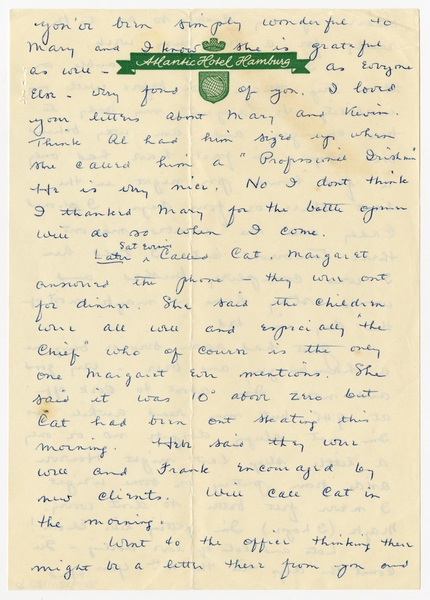 you've been simply wonderful to
Mary and I know she is grateful
Atlantic Hotel Hamburg
as well - as Everyone
Else - very fond of you. I loved
your letters about Mary and Kevin.
Think Al had him sized up when
she called him a "Professional Irishman"
He is very nice. No I dont think
I thanked Mary for the bottle opener
will do so when I come.
Later Sat Evening Called Cat. Margaret
answered the phone - they were out
for dinner. She said the children
were all well and especially "the
Chief" who of course is the only
one Margaret Ever mentions. She
said it was 10° above zero but
Cat had been out skating this
morning. said they were
well and Frank Encouraged by
new clients. Will call Cat in
the morning.
Went to the office thinking there
might be a letter there from you and